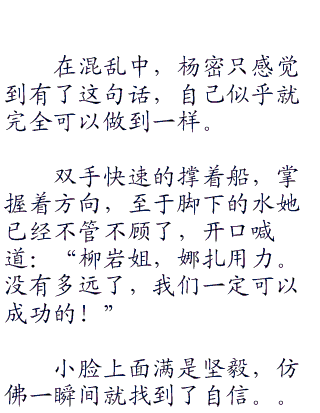 在混乱中，杨密只感觉
到有了这句话，自己似乎就
完全可以做到一样。
双手快速的撑着船，掌
握着方向，至于脚下的水她
已经不管不顾了，开口喊
道：“柳岩姐，娜扎用力。
没有多远了，我们一定可以
成功的！”
小脸上面满是坚毅，仿
佛一瞬间就找到了自信。。